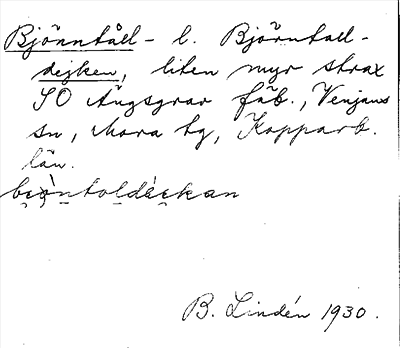 Björntåll- l. Björntall-
dejken, liten myr strax
SO Ängsgrav fäb., Venjans
sn, Mora tg, Kopparb.
län.
bi̯ò̱ntoldéi̯kan
B. Lindén 1930.